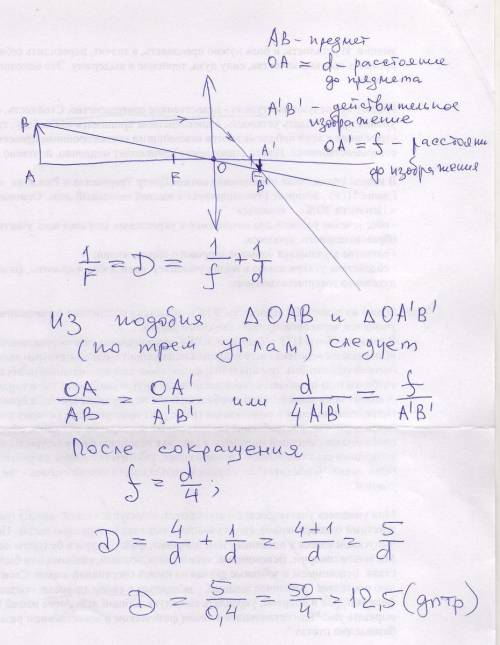 AB - предмет
OA = d - расстояние
до предмета
A'B' - действительное
изображение
OA' = f - расстояни
до изображения
B
A
F
O
F
A'
B'
1/F = D = 1/f + 1/d
Из подобия △OAB и △OA'B'
(по трем углам) следует
OA/AB = OA'/A'B' или d/4A'B' = f/A'B'
После сокращения
f = d/4;
D = 4/d + 1/d = 4+1/d = 5/d
D = 5/0,4 = 50/4 = 12,5 (дптр)